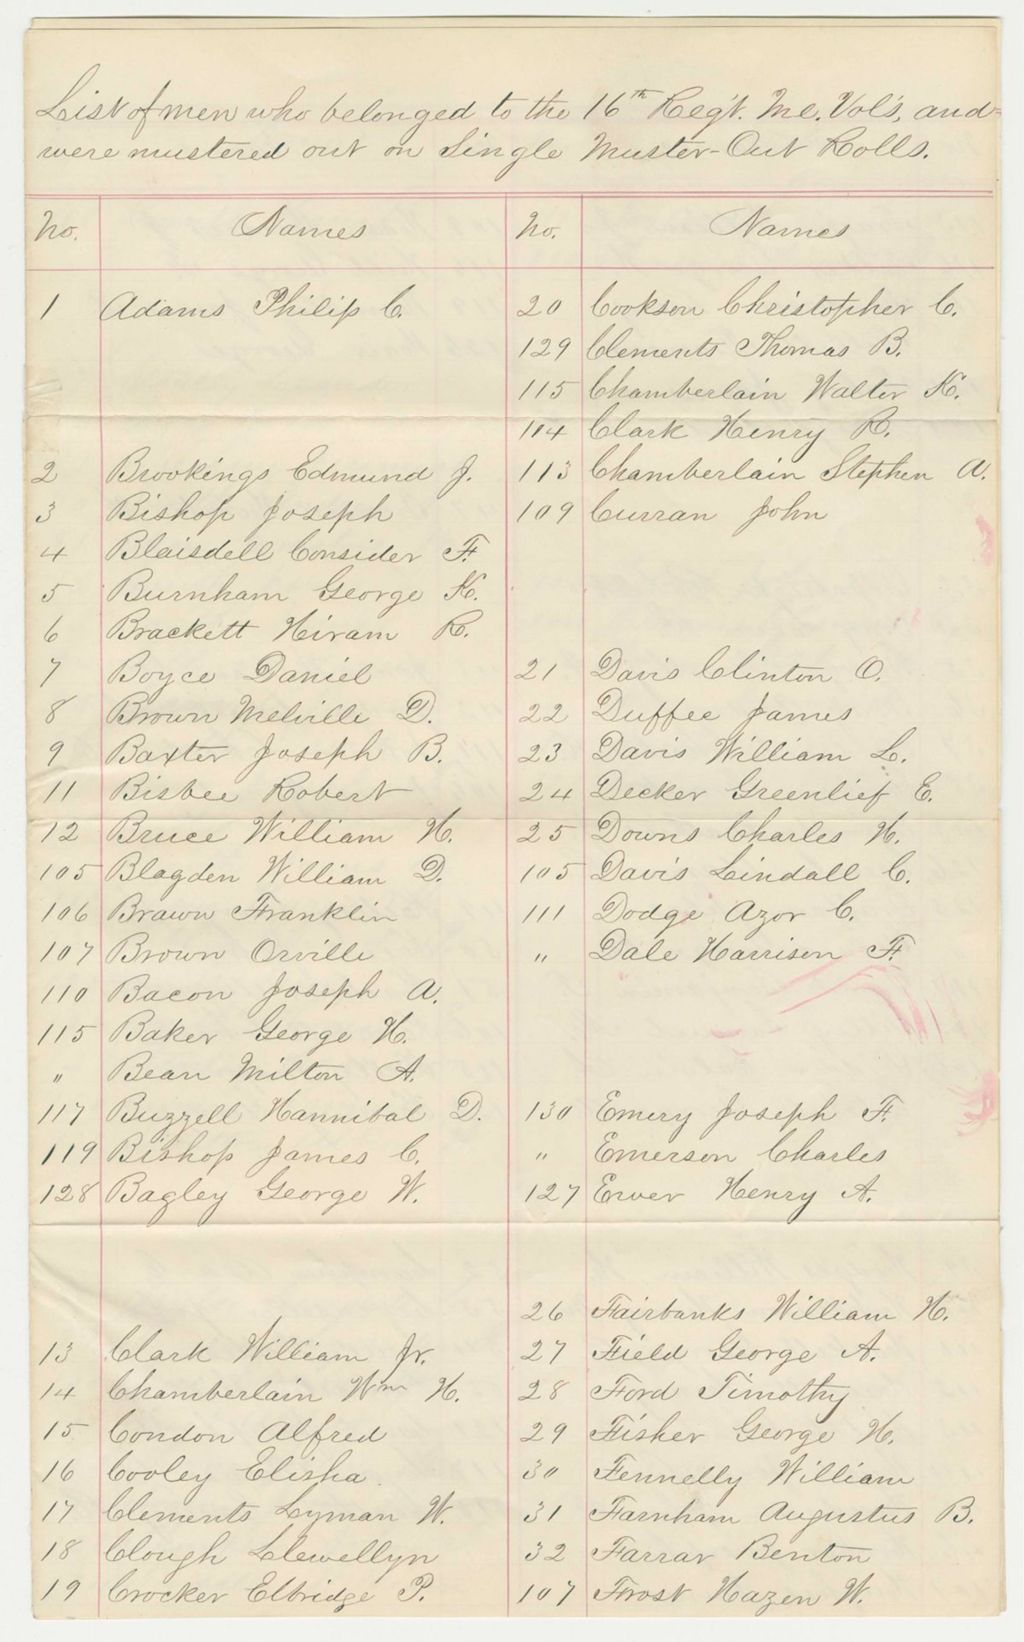 List of men who belonged to the 16th Reg't. Me. Vol's, and
were mustered out on Single Muster-Out Rolls.
No. Names
1 Adams Philip C.
2 Brookings Edmund J.
3 Bishop Joseph
4 Blaisdell Consider F.
5 Burnham George K.
6 Brackett Hiram R.
7 Boyce Daniel
8 Brown Melville D.
9 Baxter Joseph B.
11 Bisbee Robert
12 Bruce William H.
105 Blagden William D.
106 Brawn Franklin
107 Brown Orville
110 Bacon Joseph A.
115 Baker George H.
" Bean Milton A.
117 Buzzell Hannibal D.
119 Bishop James C.
128 Bagley George W.
13 Clark William Jr.
14 Chamberlain Wm H.
15 Condon Alfred
16 Cooley Elisha
17 Clements Lyman W.
18 Clough Llewellyn
19 Crocker Elbridge P.
No. Names
20 Cookson Christopher C.
129 Clements Thomas B.
115 Chamberlain Walter K.
114 Clark Henry R.
113 Chamberlain Stephen A.
109 Curran John
21 Davis Clinton O.
22 Duffee James
23 Davis William L.
24 Decker Greenlief E.
25 Downs Charles H.
105 Davis Lindall C.
111 Dodge Azor C.
" Dale Harrison F.
130 Emery Joseph F.
" Emerson Charles
127 Ewer Henry A.
26 Fairbanks William H.
27 Field George A.
28 Ford Timothy
29 Fisher George H.
30 Fennelly William
31 Farnham Augustus B.
32 Farrar Benton
107 Frost Hazen W.